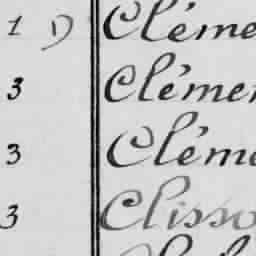 1 D Cléme
3 Clémen
3 Cléme
3 Clisso